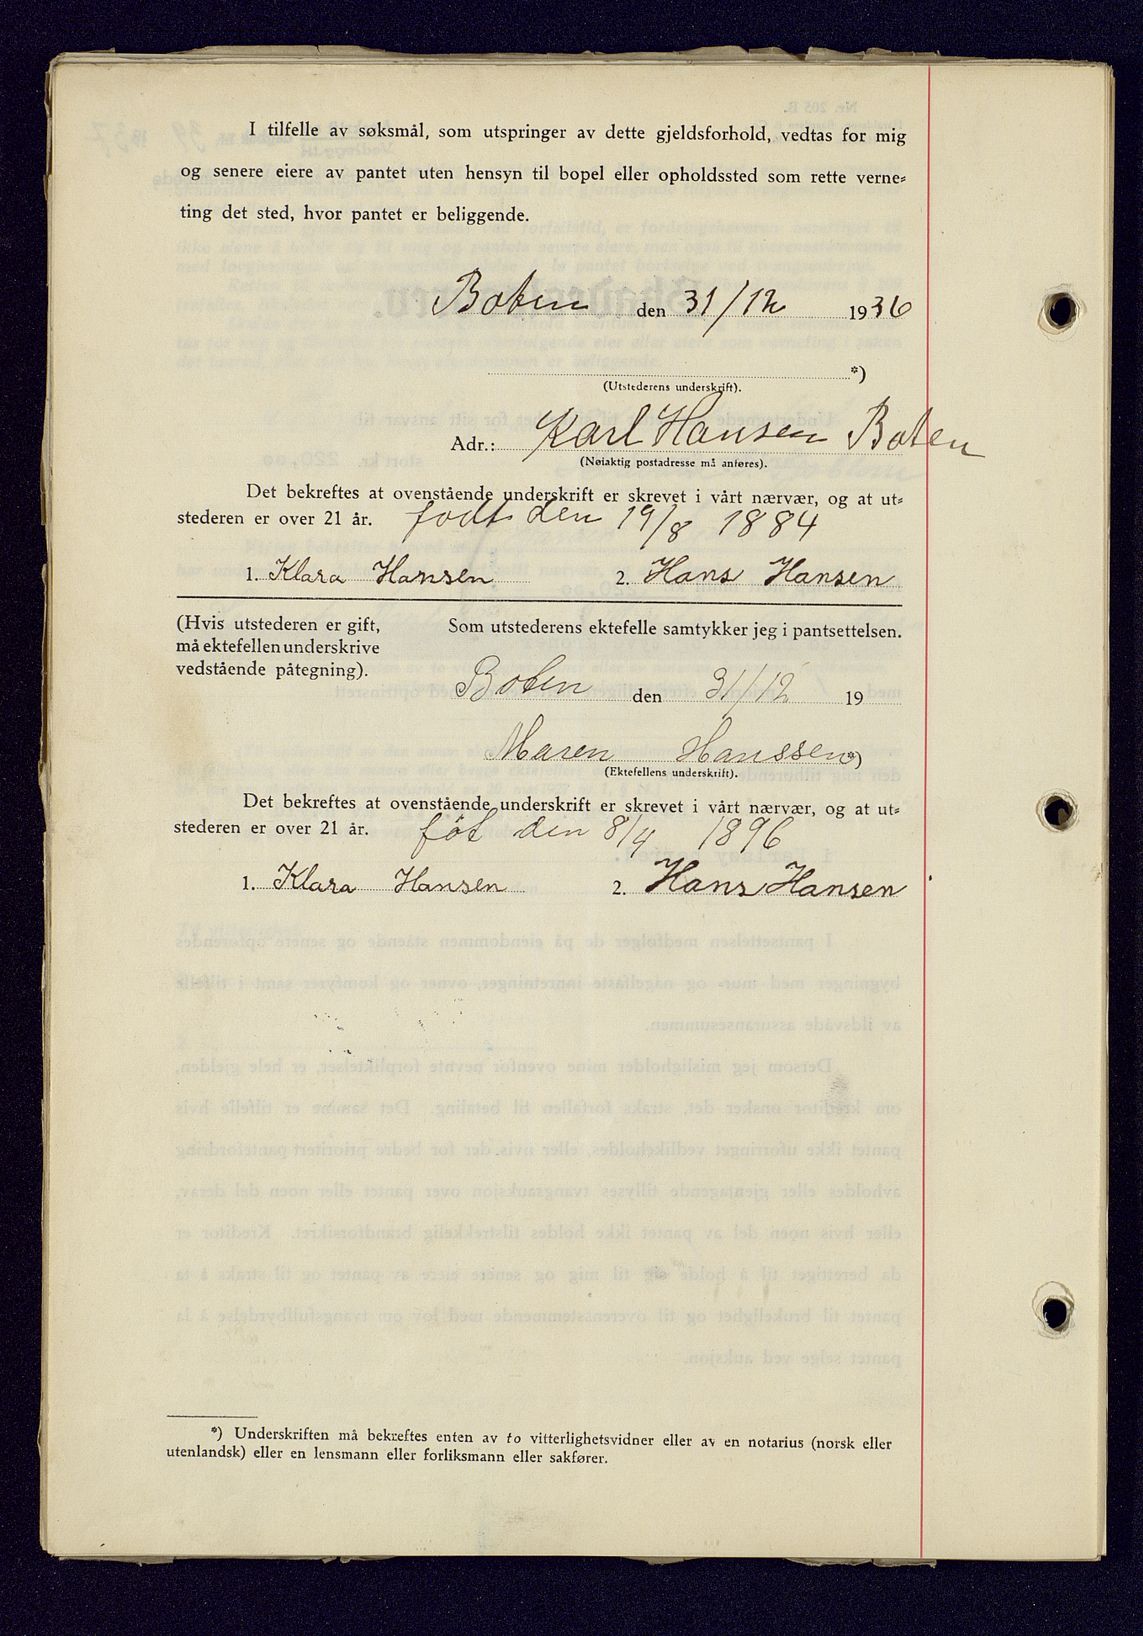 I tilfelle av søksmål, som utspringer av dette gjeldsforhold, vedtas for mig
og senere eiere av pantet uten hensyn til bopel eller opholdssted som rette verne=
ting det sted, hvor pantet er beliggende.
Boten den 31/12 1936
*)
(Utstederens underskrift).
Adr.: Karl Hansen Boten
(Nøiaktig postadresse må anføres).
Det bekreftes at ovenstående underskrift er skrevet i vårt nærvær, og at ut=
stederen er over 21 år. født den 19/8 1884
1. Klara Hansen 2. Hans Hansen
(Hvis utstederen er gift,
må ektefellen underskrive
vedstående påtegning).
Som utstederens ektefelle samtykker jeg i pantsettelsen.
Boten den 31/12 19
Maren Hanssen *)
(Ektefellens underskrift).
Det bekreftes at ovenstående underskrift er skrevet i vårt nærvær, og at ut=
stederen er over 21 år. føt den 8/4 1896
1. Klara Hansen 2. Hans Hansen
*) Underskriften må bekreftes enten av to vitterlighetsvidner eller av en notarius (norsk eller
utenlandsk) eller en lensmann eller forliksmann eller sakfører.